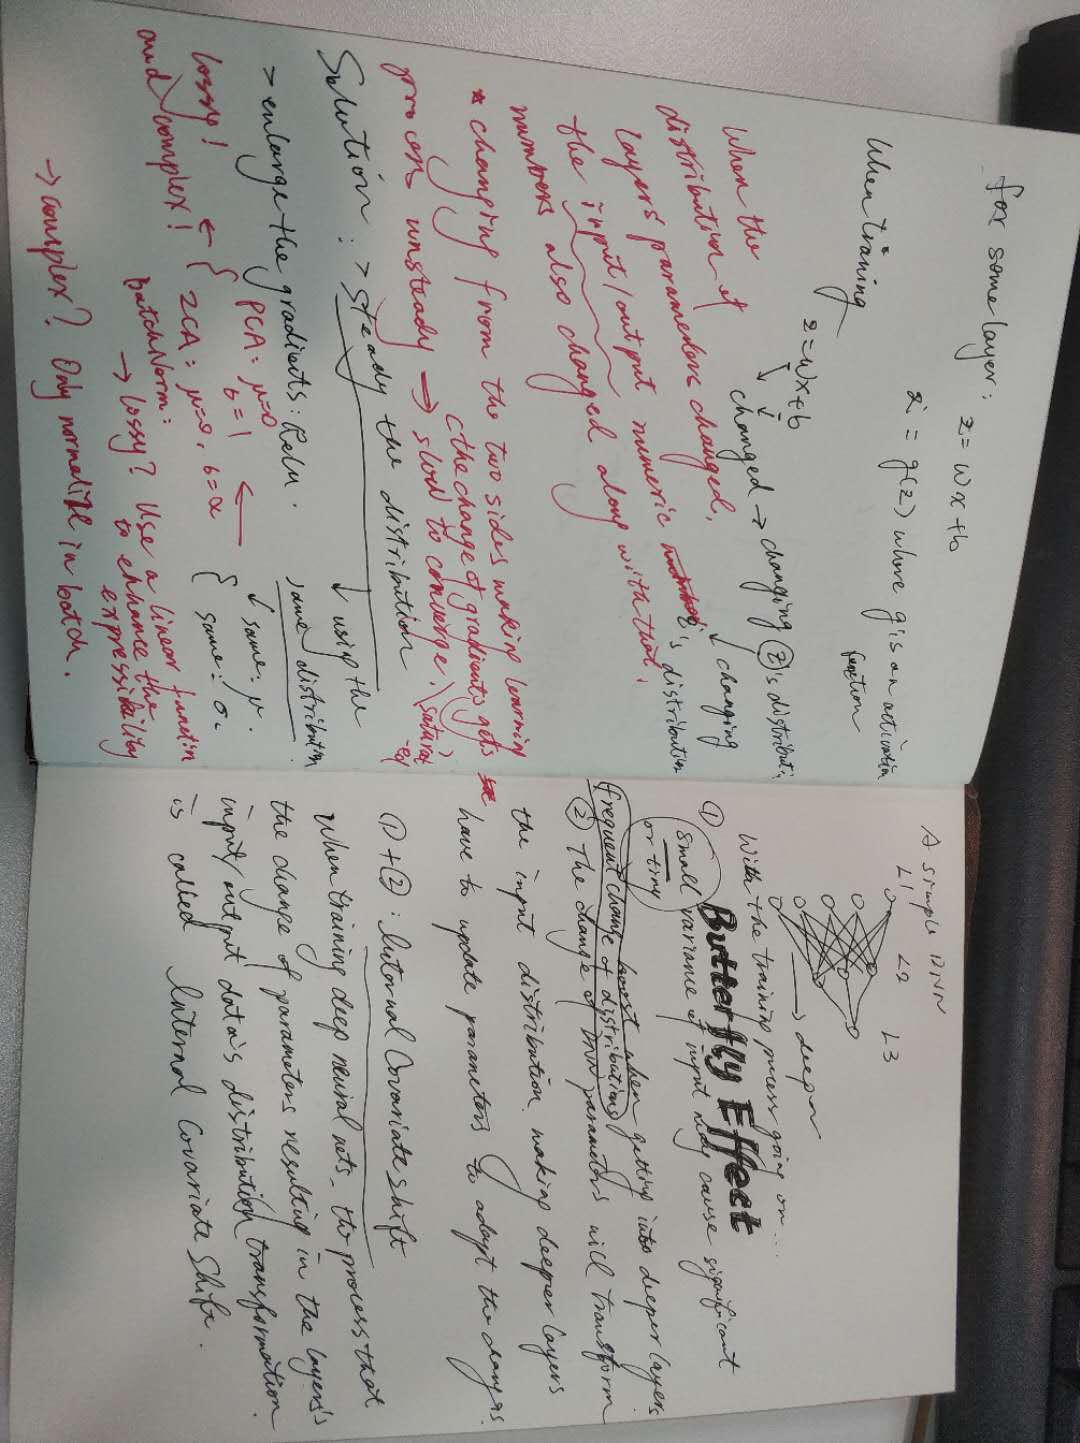 for some layer:
z = wx + b
z' = g(z) where g is an activation
function
When training
z = wx + b
changed → changing z's distributi
↓ changing
's distribution
When the
distribution of
layers parameters changed,
the input/output numeric
numbers also changed along with that.
* changing from the two sides making learning
process unsteady → slow to converge.
(the change of gradients gets
Solution: > steady the distribution
> enlarge the gradients: Relu.
↓ using the
same distribution
lossy!
and complex!
← { PCA: μ=0
б = 1
ZCA: μ=0, б=α
←
{ same: μ.
same: σ.
BatchNorm:
→ lossy? Use a linear function
to enhance the
expressibility
→ complex? Only normalize in batch.
A simple DNN
L1 L2 L3
→ deeper
With the training process going on...
Butterfly Effect
① Small variance of input may cause significant
or tiny
getting into deeper layers
frequent change of distributions
② The change of DNN parameters will transform
the input distribution, making deeper layers
have to update parameters to adapt the changes.
①+②: Internal Covariate Shift
When training deep neural nets, the process that
the change of parameters resulting in the layers's
input/output data's distribution transformation
is called Internal Covariate Shift.